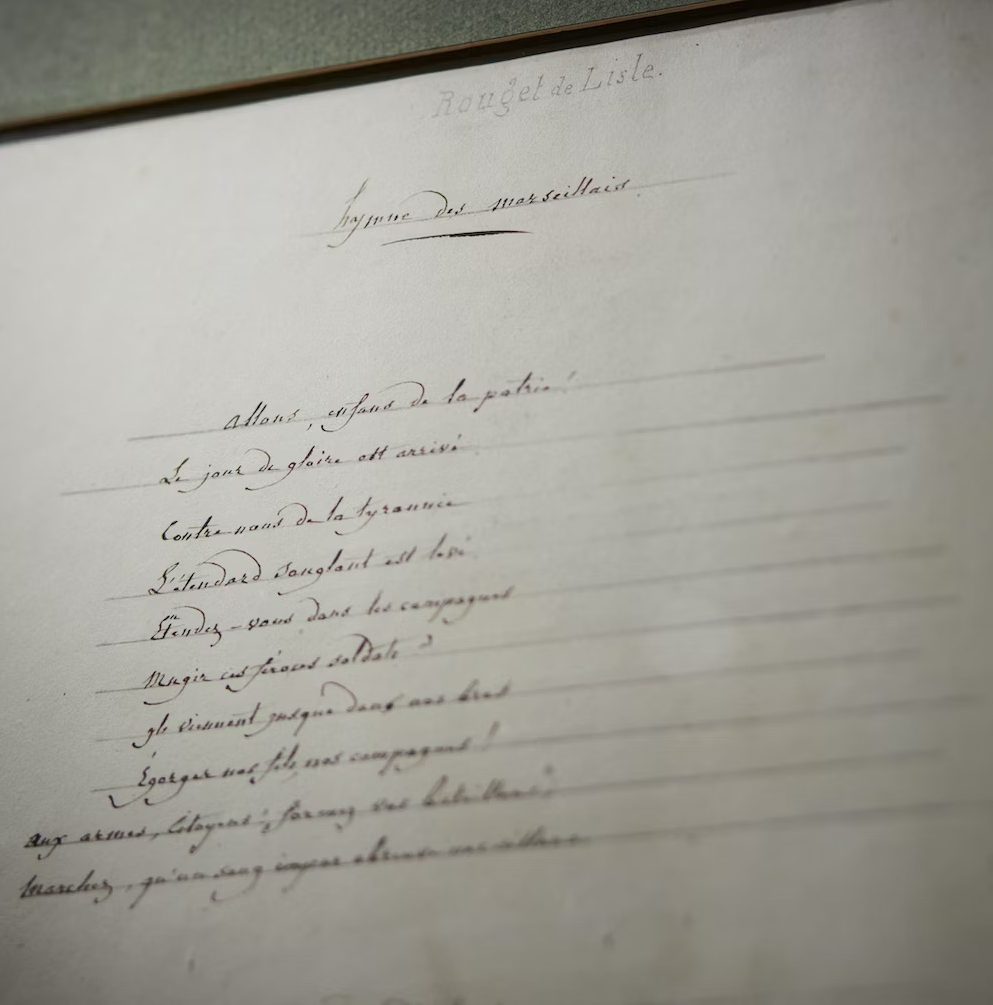 Rouget de Lisle.
hymne des marseillais
Allons, enfans de la patrie !
Le jour de gloire est arrivé
Contre nous de la tyrannie
L'étendard sanglant est levé
Entendez-vous dans les campagnes
Mugir ces féroces soldats ?
ils viennent jusque dans vos bras
Égorger vos fils, vos compagnes !
aux armes, Citoyens ; formez vos bataillons ;
Marchez, qu'un sang impur abreuve vos sillons